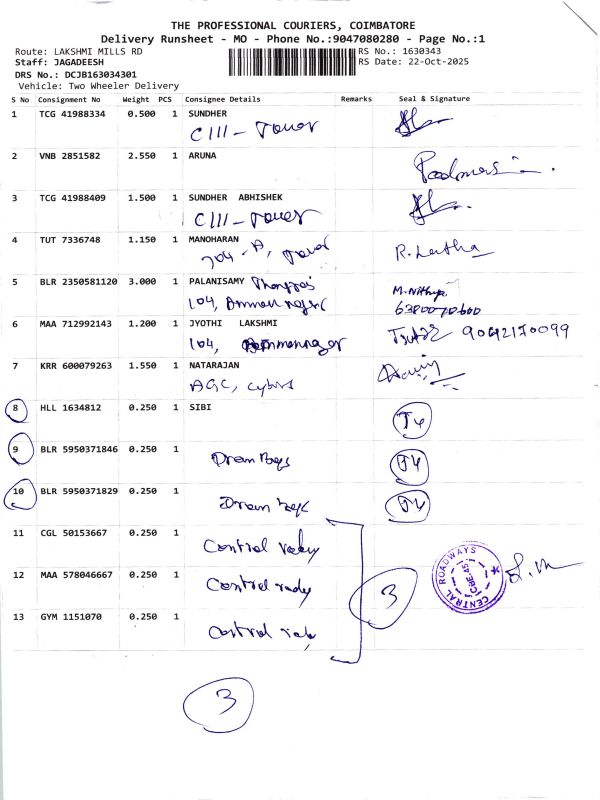 THE PROFESSIONAL COURIERS, COIMBATORE
Delivery Runsheet - MO - Phone No.:9047080280 - Page No.:1
Route: LAKSHMI MILLS RD RS No.: 1630343
Staff: JAGADEESH RS Date: 22-Oct-2025
DRS No.: DCJB163034301
Vehicle: Two Wheeler Delivery
S No Consignment No Weight PCS Consignee Details Remarks Seal & Signature
1 TCG 41988334 0.500 1 SUNDHER
C111 - Tower
2 VNB 2851582 2.550 1 ARUNA
3 TCG 41988409 1.500 1 SUNDHER ABHISHEK
C111 - Tower
4 TUT 7336748 1.150 1 MANOHARAN
704 - A, Tower R. Latha
5 BLR 2350581120 3.000 1 PALANISAMY
104, Amman nager M. Nithya
6380070600
6 MAA 712992143 1.200 1 JYOTHI LAKSHMI
104, Ammannager 9042170099
7 KRR 600079263 1.550 1 NATARAJAN
AGC, Cybers
8 HLL 1634812 0.250 1 SIBI
J4
9 BLR 5950371846 0.250 1
Dream Bags J4
10 BLR 5950371829 0.250 1
Dream J4
11 CGL 50153667 0.250 1
Control
12 MAA 578046667 0.250 1
Control 3
CENTRAL ROADWAYS
CBE-45
13 GYM 1151070 0.250 1
Control
3